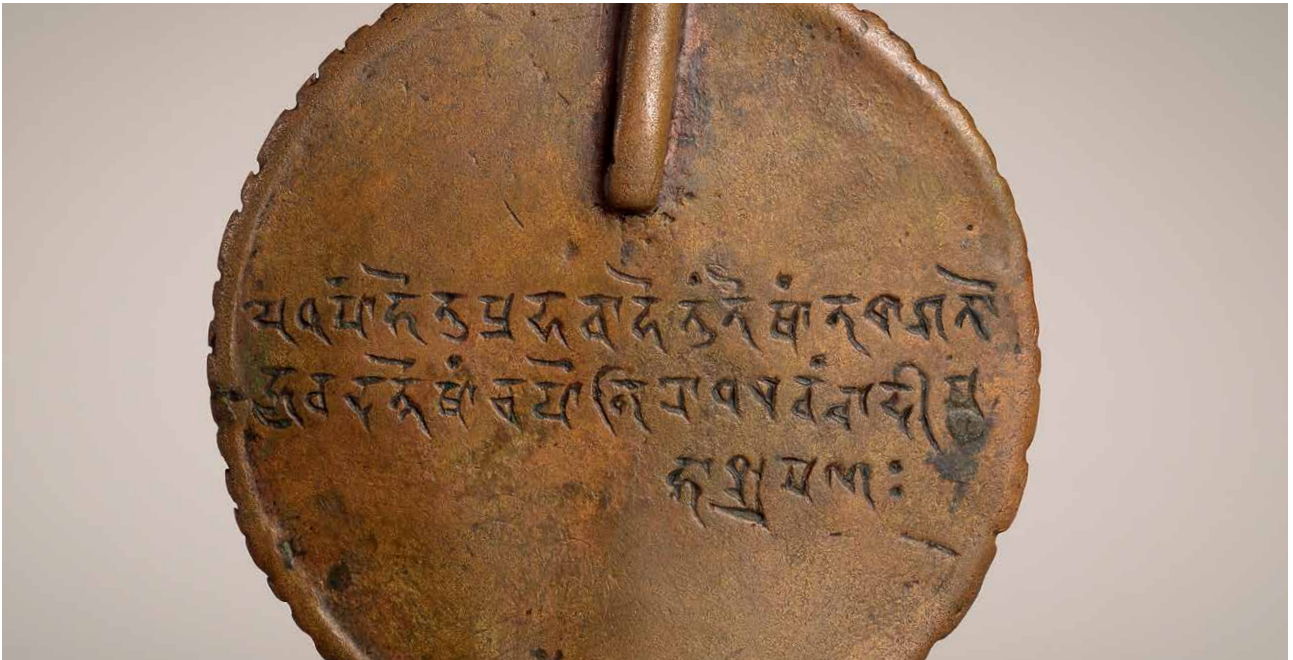 य धर्मा हेतुप्रभवा हेतुं तेषां तथागतो
ह्यवदत्तेषां च यो निरोध एवं वादी म
हाश्रमणः